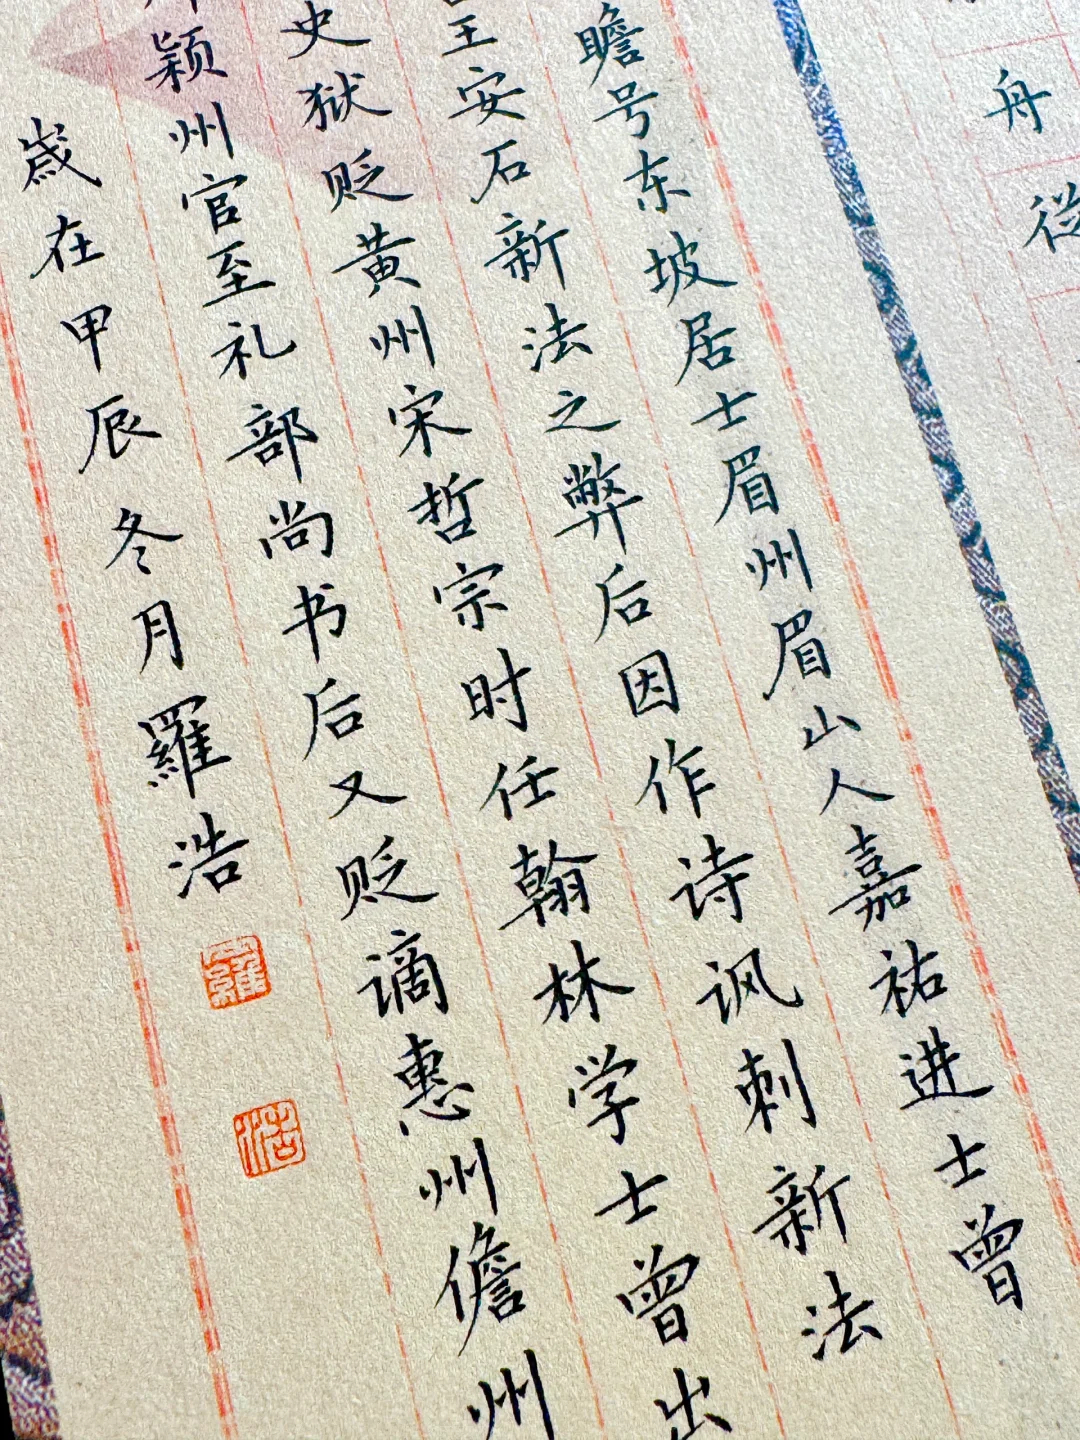 舟從
瞻号东坡居士眉州眉山人嘉祐进士曾
王安石新法之弊后因作诗讽刺新法
史狱贬黄州宋哲宗时任翰林学士曾出
颖州官至礼部尚书后又贬谪惠州儋州
歳在甲辰冬月羅浩
羅
浩